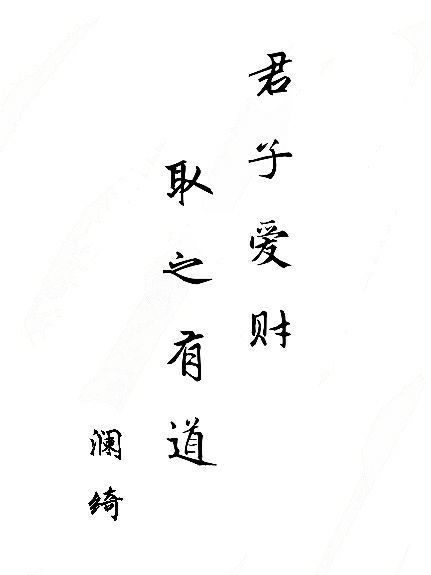 君子爱财
取之有道
澜绮